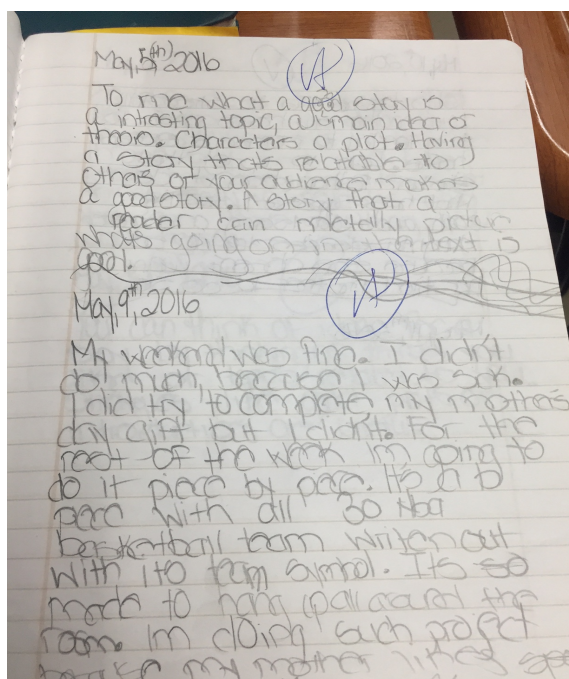 May, 5(th) 2016
To me what a good stoy is
a introsting topic, a main idea or
theoio. Characters a plot. Having
a story thats relatable to
others or your audience makes
a good story. A story that a
reader can metally pictur
whats going on in text is
good.
May, 9th, 2016
My weekend was fine. I didn't
do much, because I was sick.
I did try to complete my mothers
day gift but I didn't. For the
rest of the week im going to
do it piece by piece. It's a
pece with all 30 Nba
basketball team writen out
with its team symbol. Its so
made to hang all around the
room. im doing such project
my mother likes